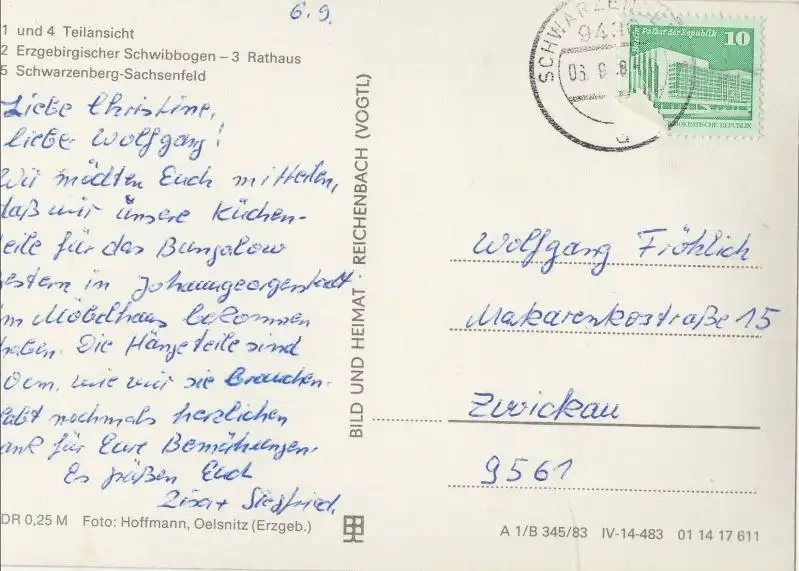 6.9.
1 und 4 Teilansicht
2 Erzgebirgischer Schwibbogen – 3 Rathaus
5 Schwarzenberg-Sachsenfeld
Liebe Christine,
liebe Wolfgang!
Wir möchten Euch mitteilen,
daß wir unsere Küchen-
teile für das Bungalow
gestern in Johanngeorgenstadt
im Möbelhaus bekommen
haben. Die Hängeteile sind
0cm, wie wir sie brauchen.
Habt nochmals herzlichen
Dank für Eure Bemühungen.
Es grüßen Euch
Lisa + Siegfried.
DR 0,25 M Foto: Hoffmann, Oelsnitz (Erzgeb.)
BILD UND HEIMAT REICHENBACH (VOGTL)
SCHWARZENBERG
06. 9. 8
a
Berlin, Palast der Republik
10
DEMOKRATISCHE REPUBLIK
Wolfgang Fröhlich
Makarenkostraße 15
Zwickau
9561
A 1/B 345/83 IV-14-483 01 14 17 611